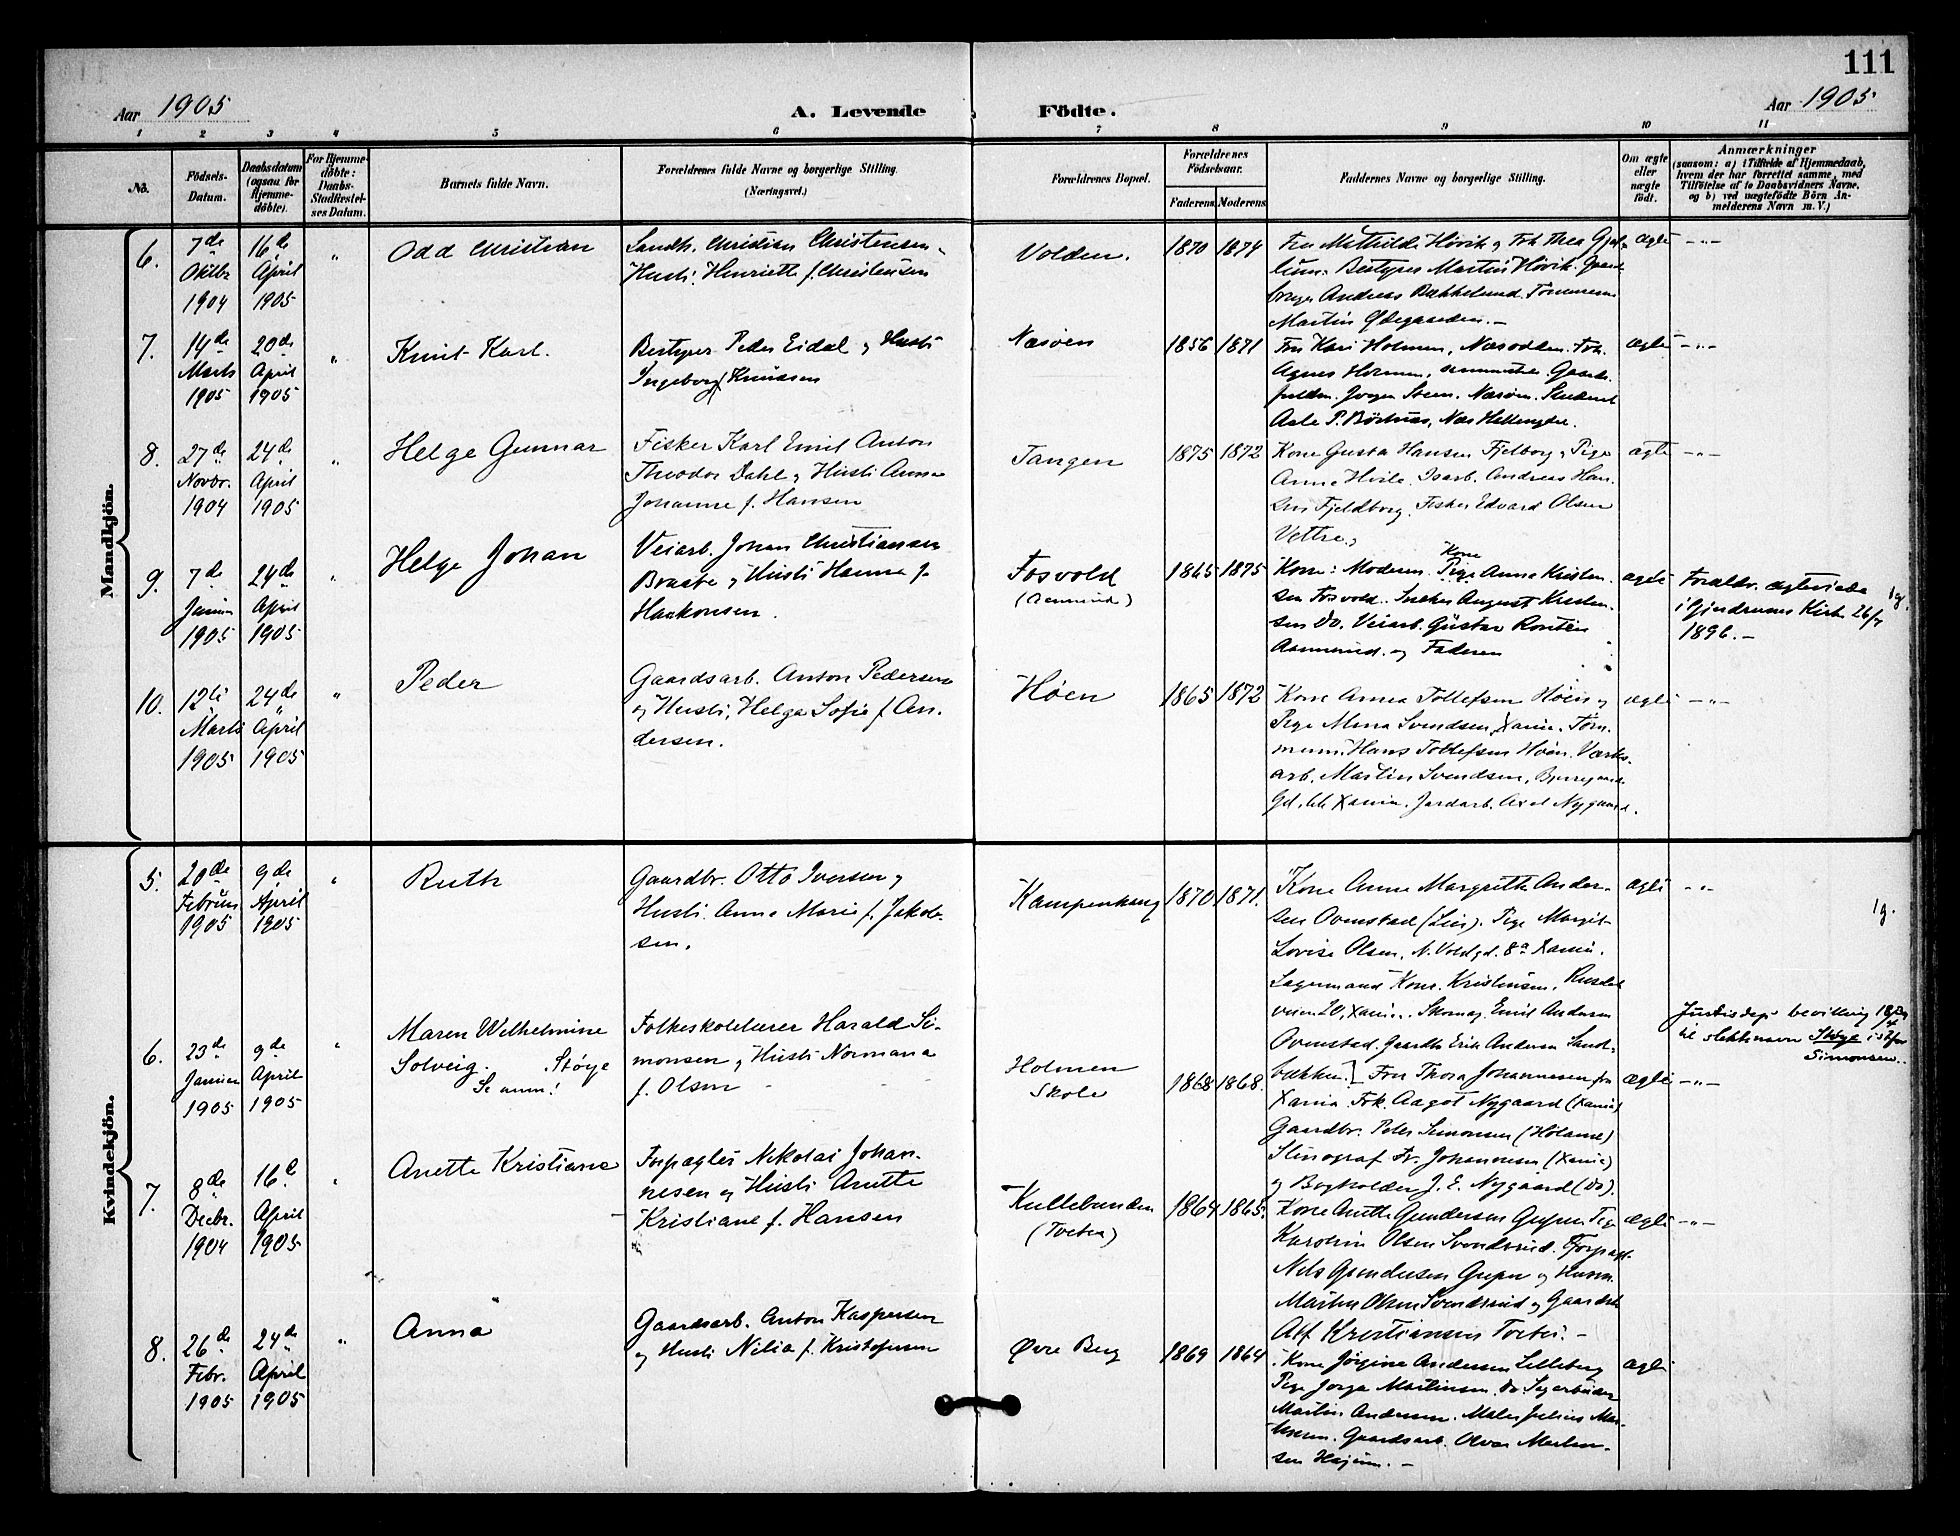 111
Aar 1905
A. Levende Födte.
Aar 1905
1 2 3 4 5 6 7 8 9 10 11
No.
Födsels-
Datum.
Daabsdatum
(ogsaa for
Hjemme-
döbte).
For Hjemme-
döbte:
Daabs-
Stadfæstel-
ses Datum.
Barnets fulde Navn.
Forældrenes fulde Navne og borgerlige Stilling.
(Næringsvei.)
Forældrenes Bopæl.
Forældrenes
Födselsaar.
Faderens. Moderens.
Faddernes Navne og borgerlige Stilling.
Om ægte
eller
uægte
födt.
Anmærkninger
(saasom: a) i Tilfælde af Hjemmedaab,
hvem der har forrettet samme, med
Tilföielse af to Daabsvidners Navne,
og b) ved uægtefödte Börn An-
melderens Navn m. V.)
Mandkjön.
6.
7de
Oktbr
1904
16de
April
1905
"
Odd Christian
Landh. Christian Christensen
Hustr. Henriette f. Christensen
Volden.
1870 1874
Fru Mathilde Hövik og Frk Thea
Bestyrer Martin Hövik. Gaard
bruger Andreas Bakkelund.
Martin Ødegaarden. -
ægte
- " -
7.
14de
Marts
1905
20de
April
1905
"
Knut Karl.
Bestyrer Peder Eidal og Hustr
Ingeborg f. Knudsen
Næsöen
1856 1871
Fru Kari Holmen, Næsodden. Frk.
Agnes Holmen, sammesteds. Gaards.
Jörgen Steen. Næsöen. Student
ægte
- " -
8.
27de
Novbr.
1904
24de
April
1905
"
Helge Gunnar
Fisker Karl Emil Anton
Theodor Dahl og Hustr Anna
Johanne f. Hansen
Tangen
1875 1872
Kone Gusta Hansen Fjelborg, Pige
Anna Hvile. Isarb. Andreas Han-
sen Fjeldborg. Fisker Edvard Olsen
Vettre,
ægte
- " -
9.
7de
Januar
1905
24de
April
1905
"
Helge Johan
Veiarb. Johan Christiansen
Braate og Hustr Hanna f.
Haakonsen.
Fosvold
1865 1875
Kone: Moderen. Kone Pige Anna Kristen-
sen Fosvold. August Kristen-
sen Do. Veiarb. Gustav
og Faderen
ægte
Foræld. ægteviede
i Gjerdrums Kirke 26/7
1896. -
ig.
10.
12te
Marts
1905
24de
April
1905
"
Peder
Gaardsarb. Anton Pedersen
og Hustr. Helga Sofie f. An-
dersen.
Höen
1865 1872
Kone Anna Tollefsen Höen og
Pige Mina Svendsen, Xania. Töm-
merm. Hans Tollefsen Höen. Værks-
arb. Martin Svendsen,
Xania. Jordarb. Axel Nygaard.
ægte
- " -
Kvindekjön.
5.
20de
Februar
1905
9de
April
1905
"
Ruth
Gaardbr. Otto Iversen og
Hustr. Anna Marie f. Jakob-
sen.
Kampenhaug
1870. 1871.
Kone Anna Margrethe Ander-
sen Ovenstad (Lier). Pige Margit
Lovise Olsen, N. Voldgd. 8a Xania.
Lagermand Konr. Kristensen,
veien 20, Xania. Skomag. Emil Andersen
Ovenstad. Gaardbr. Erik Andersen Sand-
bakken.
ægte
- " -
ig.
6.
23de
Januar
1905
9de
April
1905
"
Maren Wilhelmine
Solveig. Störje
Se anm!
Folkeskolelærer Harald Si-
monsen og Hustr Normana
f. Olsen
Holmen
Skole
1868 1868.
Fru Thora Johannessen fra
Xania. Frk. Aagot Nygaard (Xania)
Gaardbr. Peter Simonsen (Holane)
Stenograf Fr. Johannesen (Xania)
og Bogholder J. E. Nygaard (Do).
ægte
- " -
Justisdep. bevilling
til slektsnavn Störje istf
Simonsen.
7.
8de
Decbr.
1904
16de
April
1905
"
Anette Kristiane
Forpagter Nikolai Johan-
nesen og Hustr Anette
Kristiane f. Hansen
Kullebunden
(Tveter)
1864 1865.
Kone Anette Gundersen Pige
Karoline Olsen Svendsrud. Forpagt.
Nils Gundersen og Husm.
Martin Olsen Svendsrud og Gaardbr.
Alf Kristiansen Tveter. -
ægte
- " -
8.
26de
Febr.
1905
24de
April
1905
"
Anna
Gaardsarb. Anton Kaspersen
og Hustr Nilia f. Kristofersen
Øvre Berg
1869 1864
Kone Jörgine Andersen Lilleberg
Pige Jörga Martinsen, Do.
Martin Andersen. Maler Julius Mar-
tinsen. Gaardsarb. Olvar Martin-
sen -
ægte